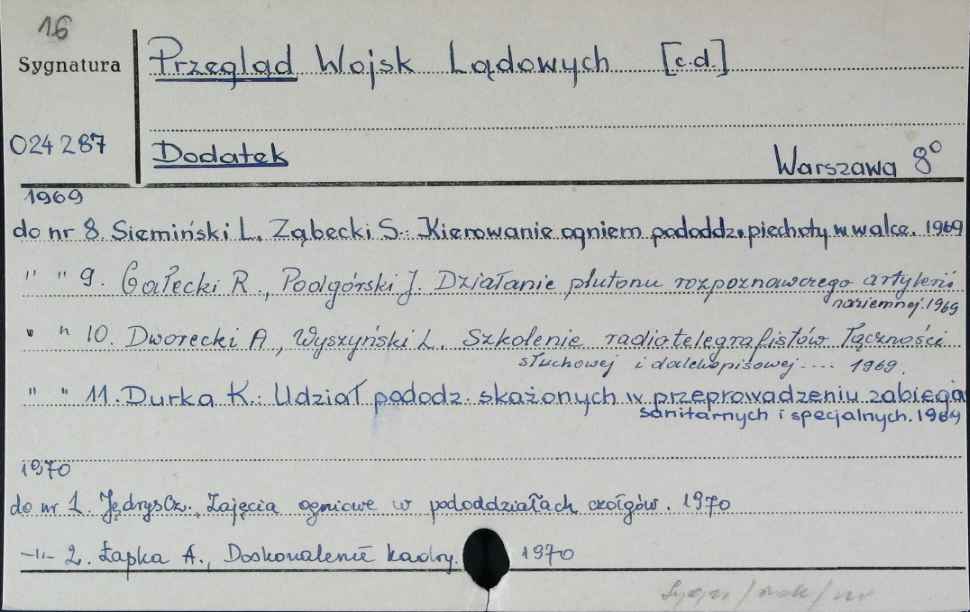 16
Sygnatura
Przegląd Wojsk Lądowych [c.d.]
024287
Dodatek
Warszawa 8°
1969
do nr 8. Siemiński L. Ząbecki S.: Kierowanie ogniem pododdz. piechoty w walce. 1969
" " 9. Gałecki R., Podgórski J. Działanie plutonu rozpoznawczego artylerii
naziemnej. 1969
" " 10. Dworecki A, Wyszyński L. Szkolenie radiotelegrafistów łączności
słuchowej i dalekopisowej.... 1969.
" " 11. Durka K.: Udział pododz. skażonych w przeprowadzeniu zabiega
sanitarnych i specjalnych. 1969
1970
do nr 1. Jędrys Cz., Zajęcia ogniowe w pododdziałach czołgów. 1970
—"— 2. Łapka A., Doskonalenie kadry. 1970
Sygn / rok / nr